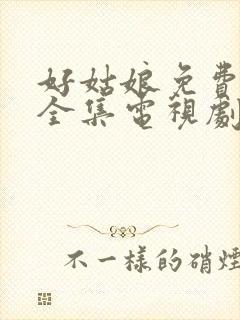 好姑娘免費
全集電視劇
不一樣的硝煙